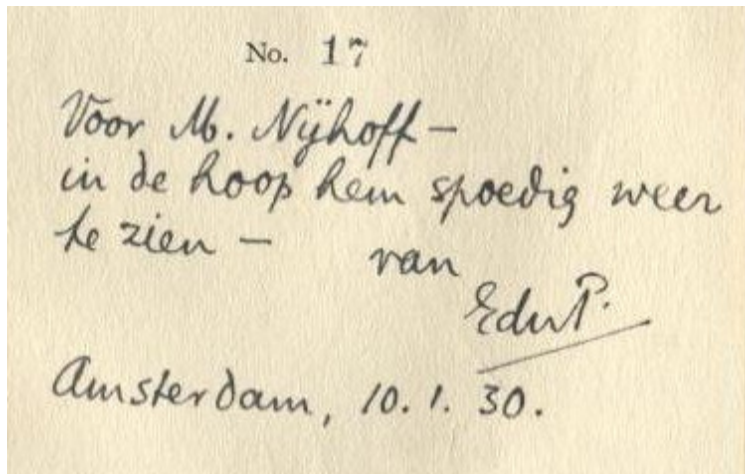 No. 17
Voor M. Nijhoff –
in de hoop hem spoedig weer
te zien – van
EduP.
Amsterdam, 10.1.30.